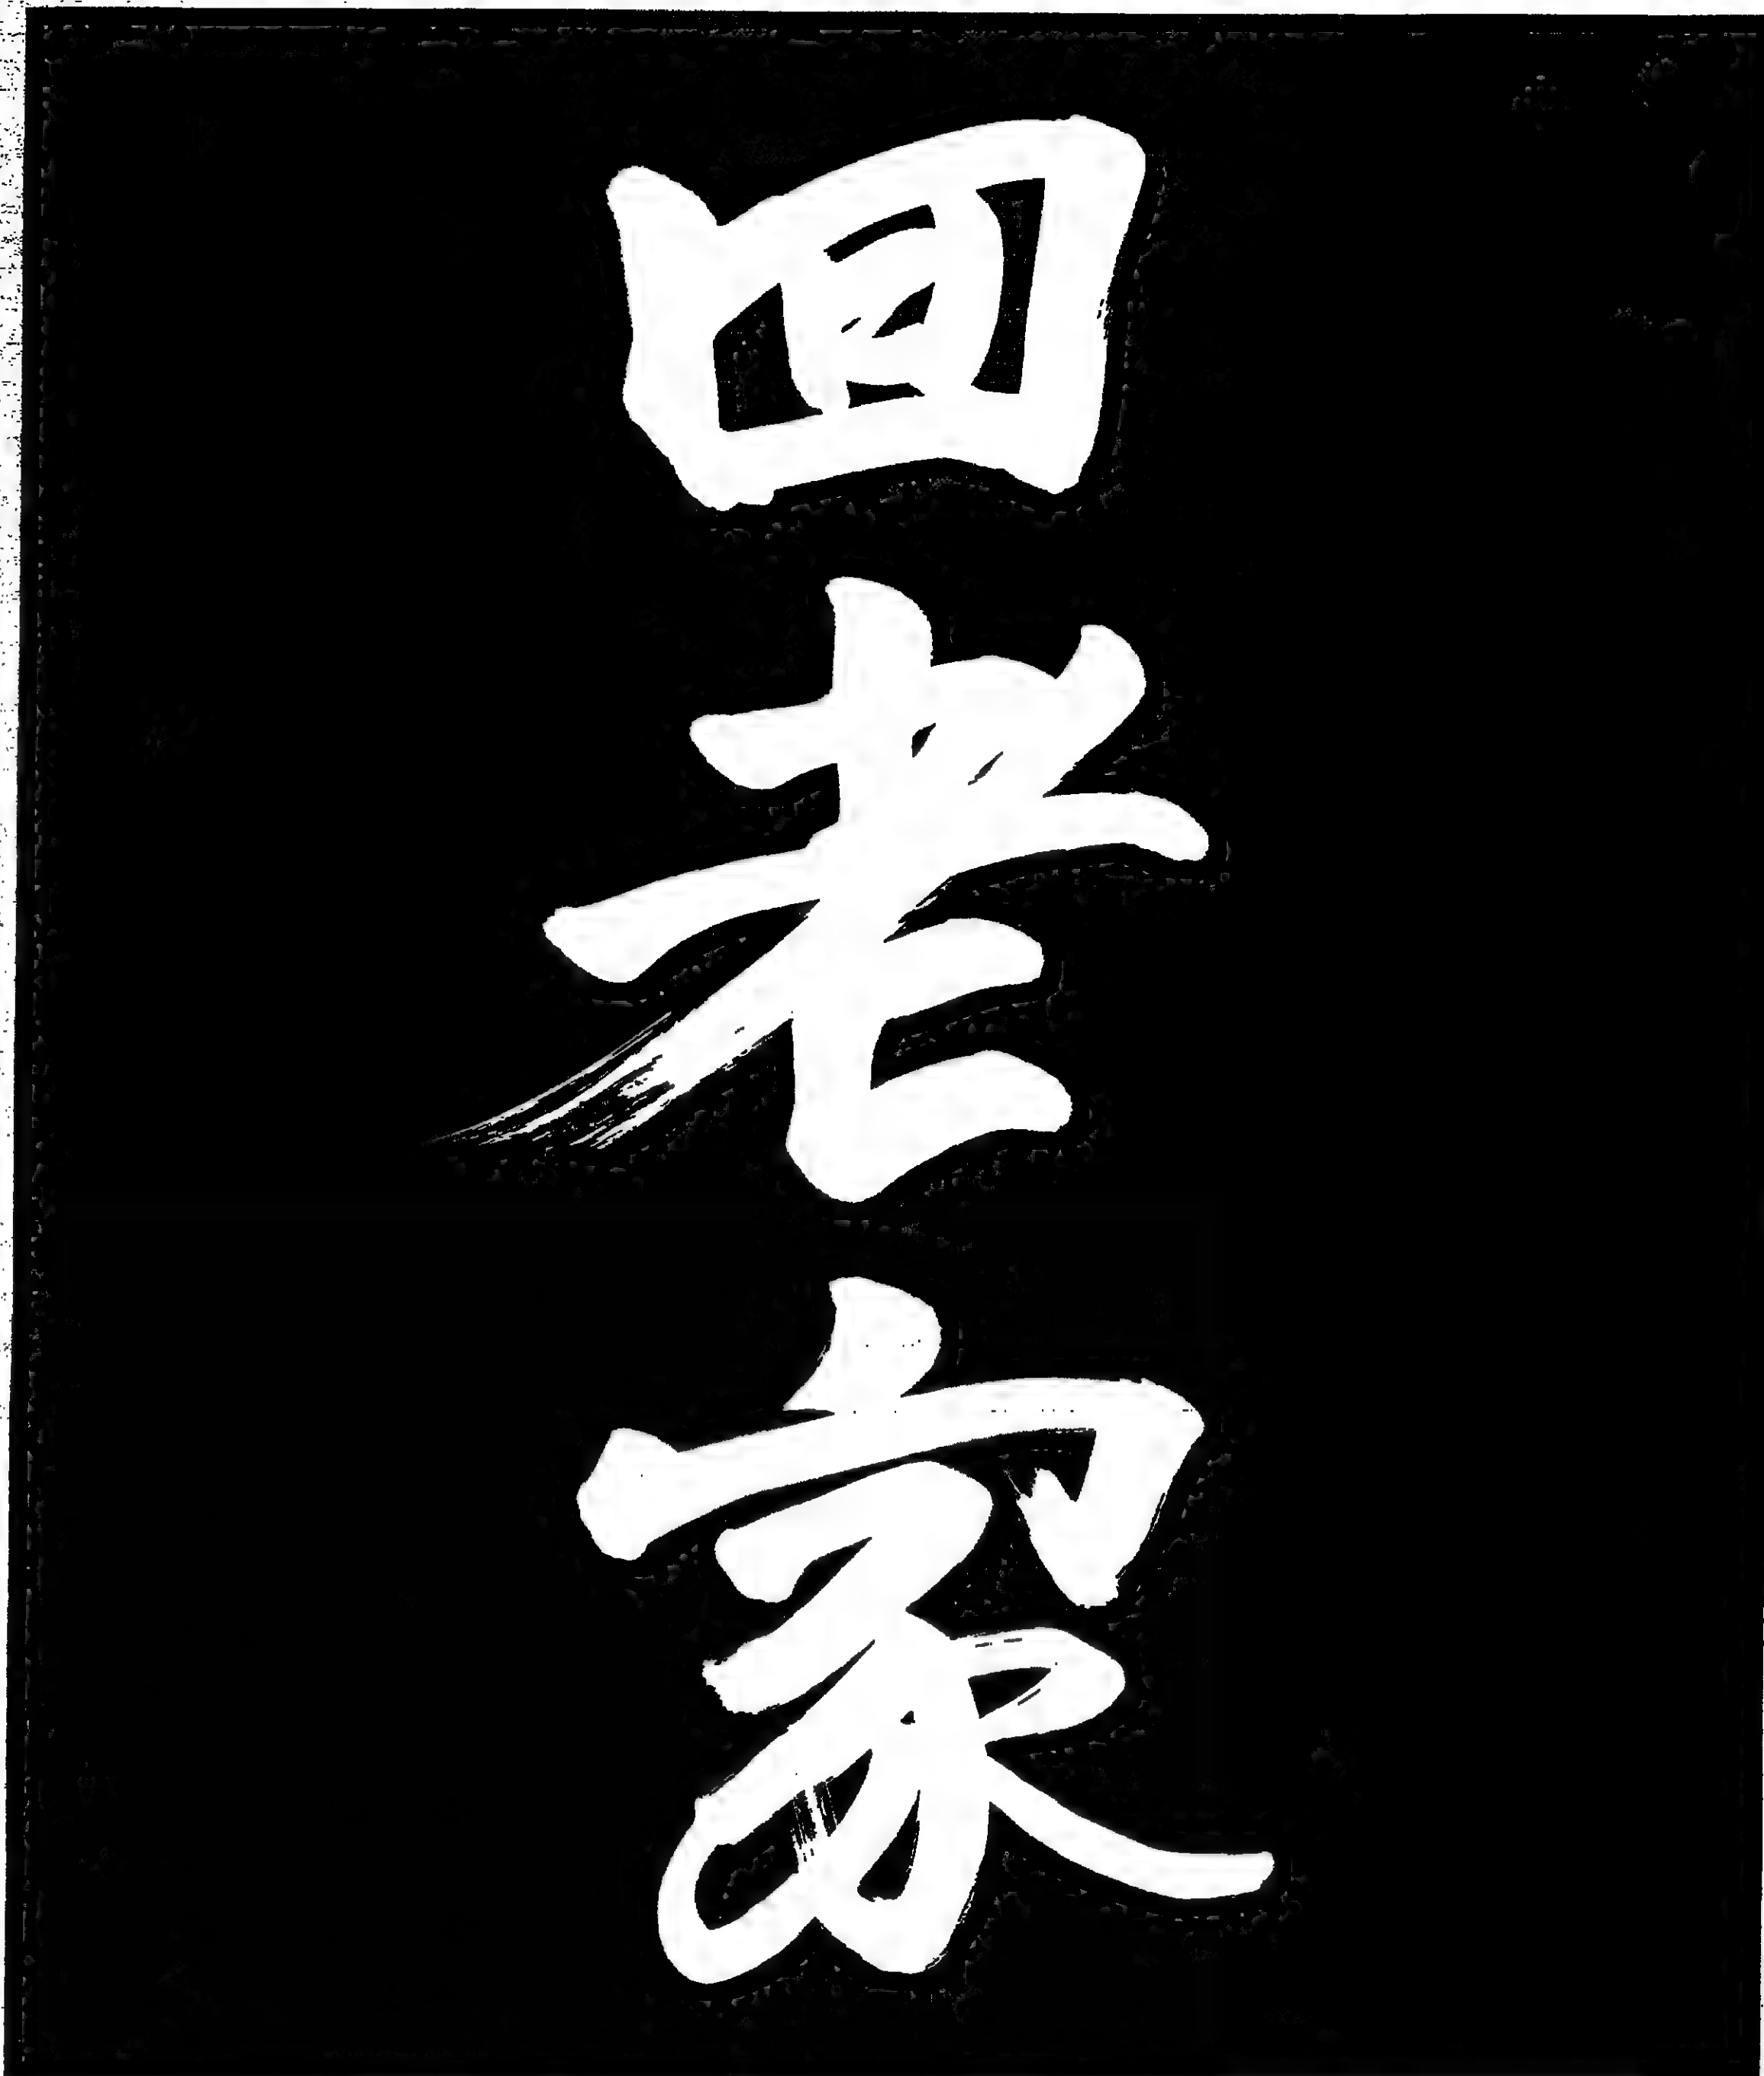 回老家